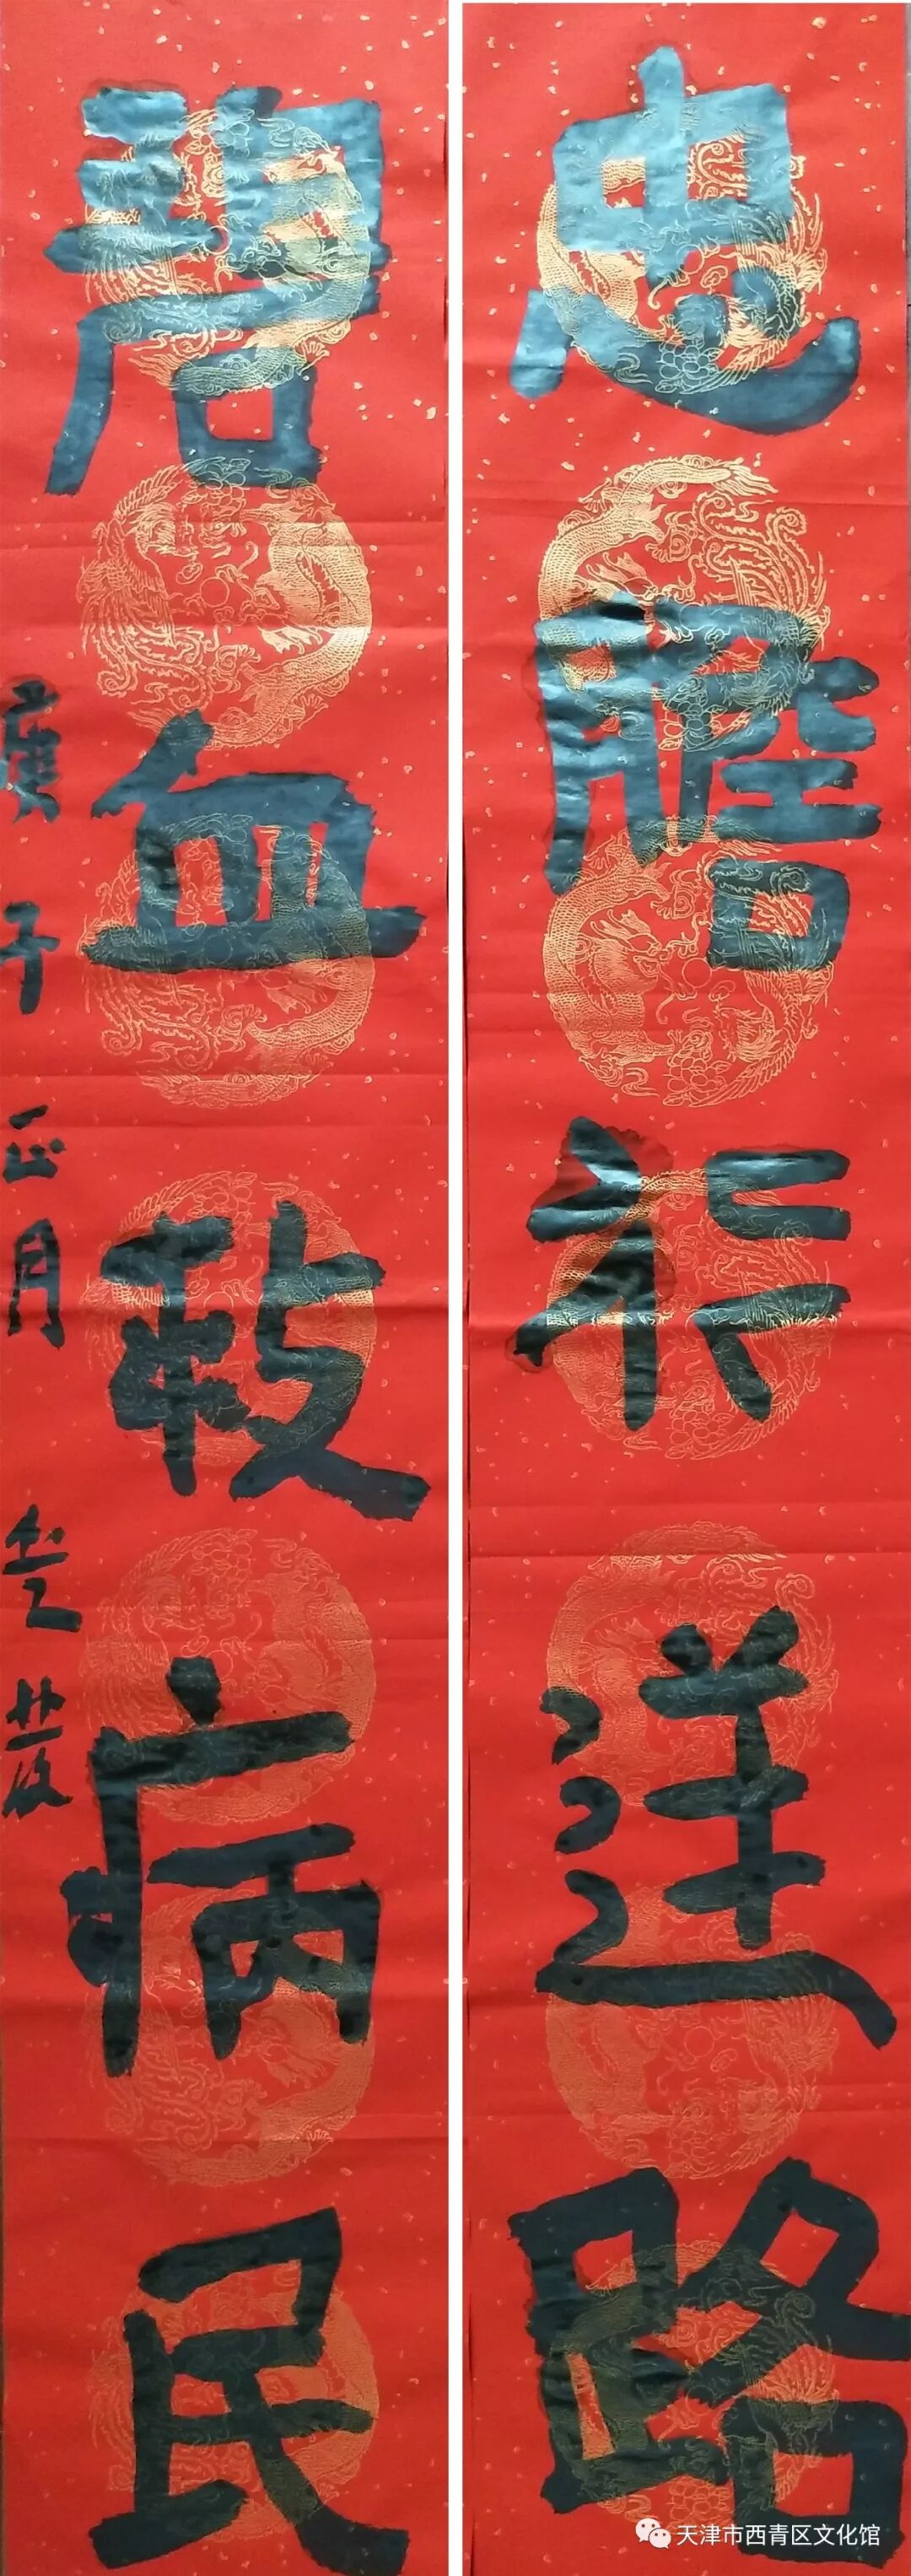 忠膽行逆路
碧血救病民
庚子正月
天津市西青区文化馆